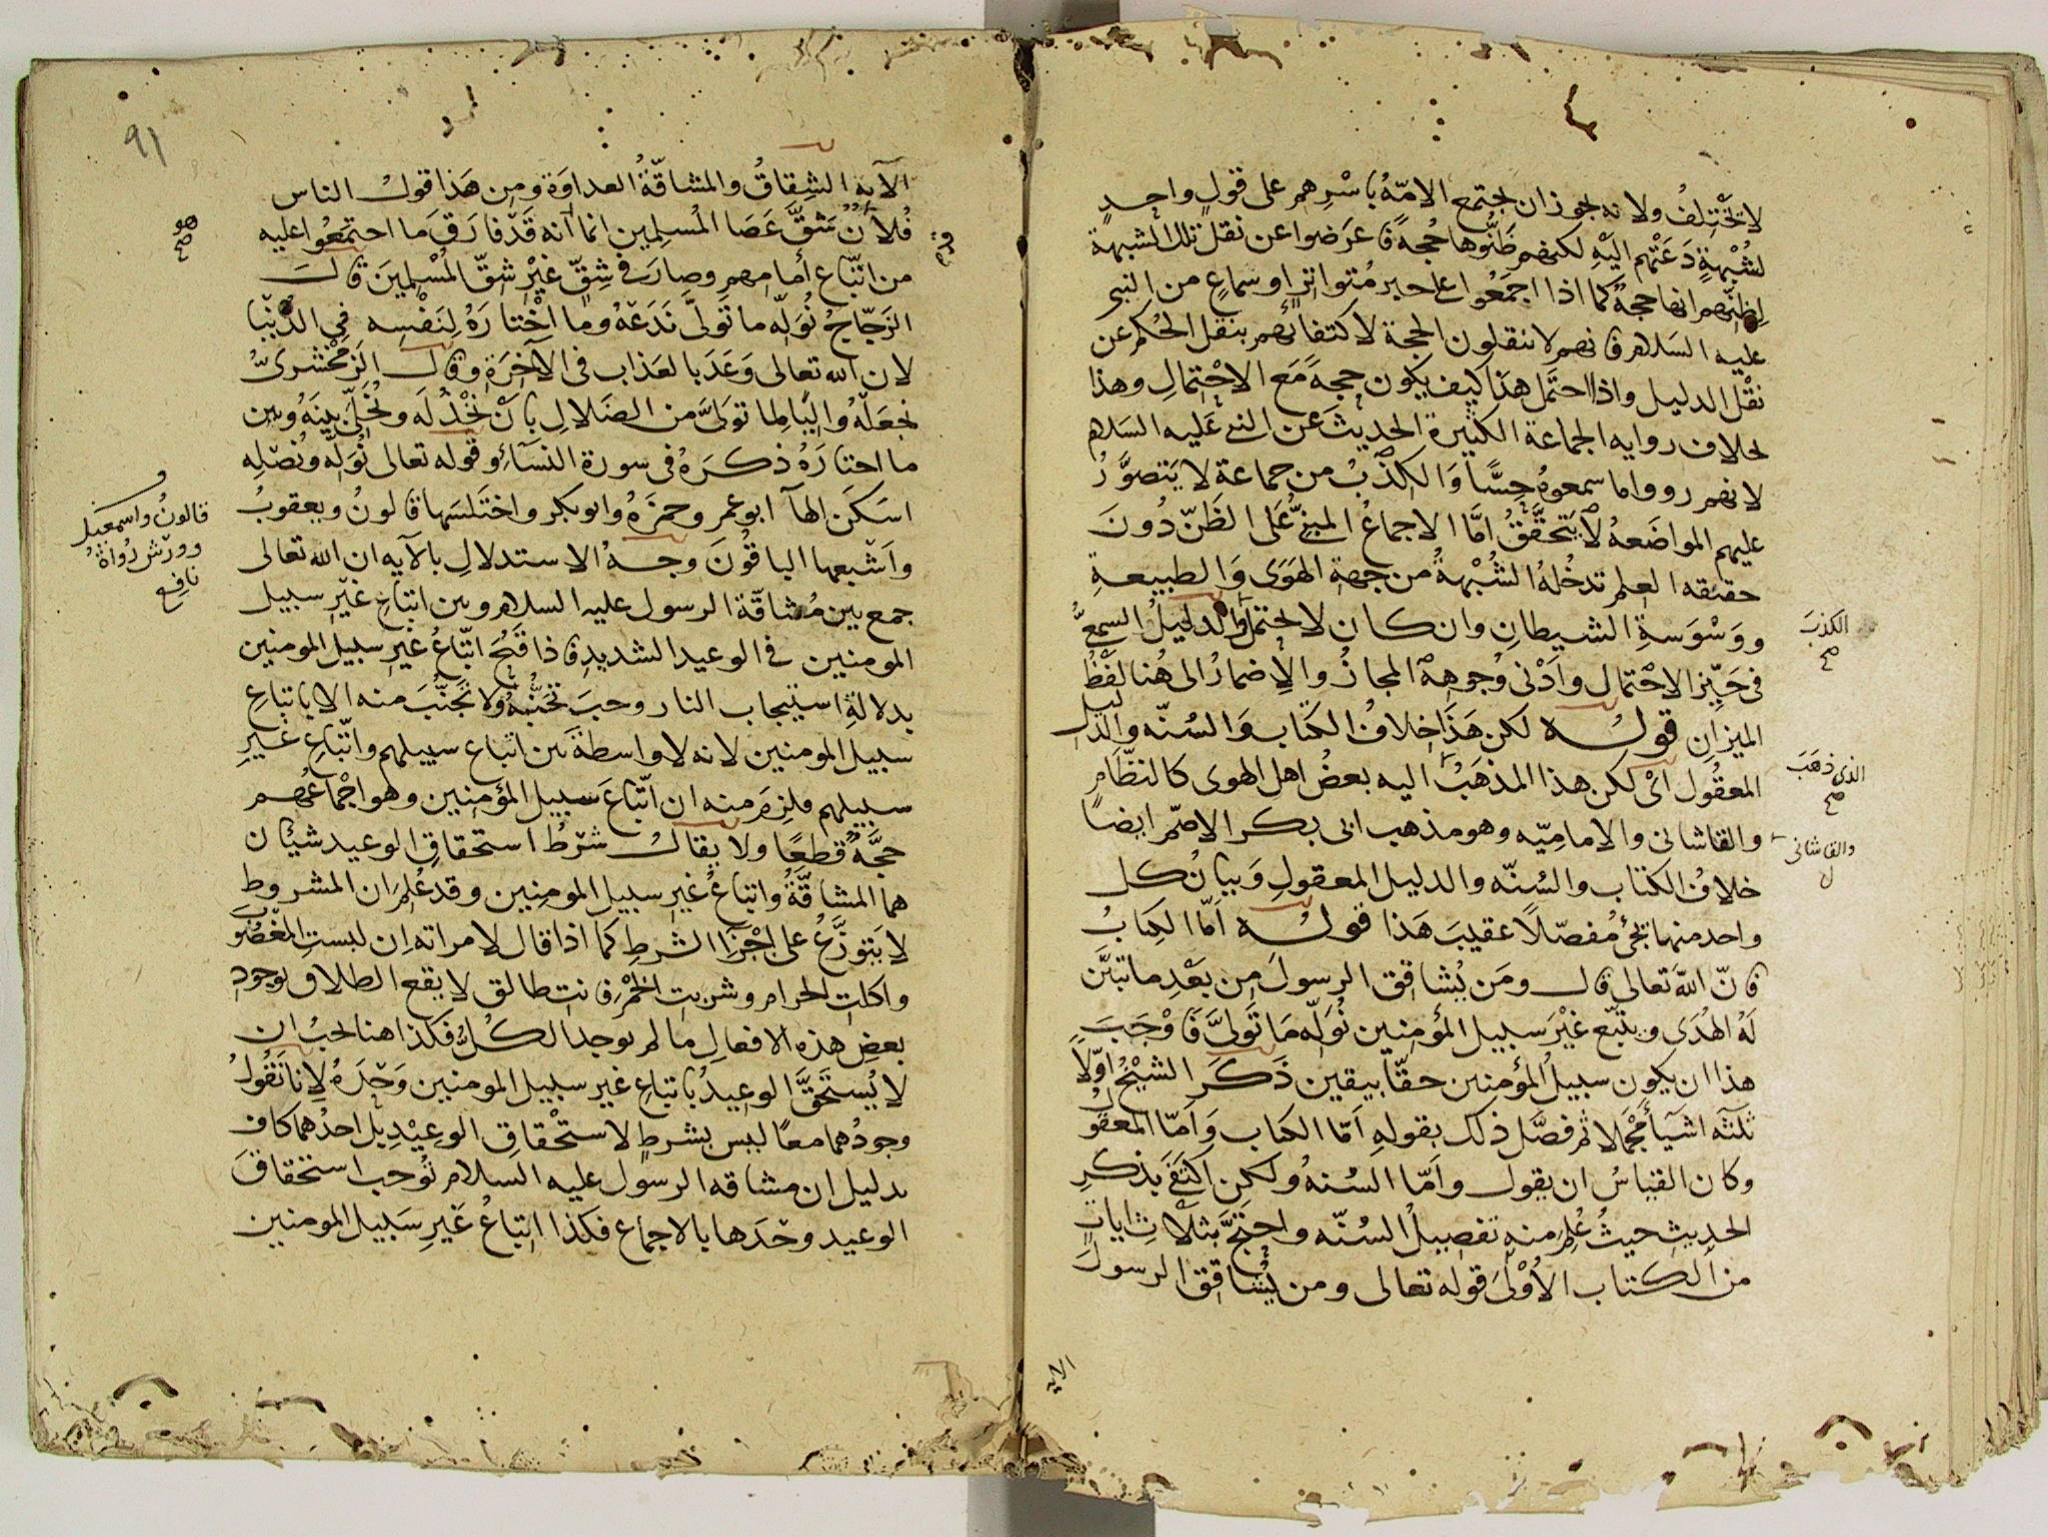 لا تختلف ولانه يجوز ان تجتمع الامّة باسرهم على قول واحدٍ
لشُبْهةٍ دَعَتْهم اليْهِ لكنهم ظَنُّوها حُجةً فاعرَضوا عن نقل تلك الشبهة
لِظنّهم انها حجةٌ كما اذا اجمَعُوا على خبر مُتواترٍ او سماعٍ من النبى
عليه السَلام فانهم لا ينقلون الحجة لاكتفائهم بنقل الحُكم عن
نقْل الدليل واذا احتَمل هذا كيف يكون حجةً مَع الاحْتِمالِ وهذا
بخلاف رواية الجماعة الكثيرة الحديثَ عن النبى عَليه السَلام
لانهم رووا ما سمعوهُ حِسًّا وَالكَذِبُ من جماعة لا يَتصوَّرُ
عليهم المواضَعهُ لا يتَحقَّقُ امَّا الاجماعُ المبنىُّ عَلى الظَنّ دُونَ
حقيقه العِلم تدخُلهُ الشُبْهةُ من جهةِ الهَوَى وَالطبيعةِ
ووَسْوَسةِ الشيطانِ وان كان لا يحتمل والدليلُ السمعىُّ
فى حَيّزِ الاحْتمال وادْنى وُجوهِهِ المجازُ والاِضمارُ الى هُنا لفْظُ
الميزانِ قولـه لكن هَذا خِلافُ الكتاب وَالسُنّه والدليل
المعقُول اىْ لكن هذا المذهَبُ اليه بعضُ اهل الهوى كالنظّامِ
والقاشانى والاماميّه وهو مذهب ابى بكر الاصمّ ايضاً
خلافُ الكتاب والسُنّه والدليل المعقولِ وَبيانُ كل
واحد منها يجئ مُفصّلاً عقيبَ هَذا قولـه امّا الكِتابُ
فانّ الله تعالى قال ومَن يُشاقق الرسولَ مِن بَعْدِ ما تبيَّن
لَهُ الهُدَى ويتّبع غيْرَ سبيل المؤمِنين نُوَلّه مَا تَولىَّ فَاوْجَبَ
هذا ان يكون سبيلُ المؤمنين حقّا بيقين ذَكَر الشيْخُ اوّلاً
ثلثَه اشيَآ مُجْمَلا ثم فصَّل ذلك بقولهِ امّا الكتاب وَامّا المعقُول
وكان القياسُ ان يقول وامّا السُنهُ ولكن اكتفَى بذكرِ
الحديثِ حيثُ عُلِمَ منه تفصيلُ السُنّه واحتجَّ بثلاث اياتٍ
من الكتاب الاُوْلىَ قوله تعالى ومن يُشاقق الرسولَ
الكذبَ
صح
الذى ذهَبَ
صح
والقاشانى
الايه
٩١
الآية الشِقاقُ والمشاقّةُ العداوَة ومن هَذا قول الناس
فُلانٌ شقَّ عَصَا المُسلِمين انما انه قَدْ فارَق مَا اجتمَعُوا عليه
من اتّباع امامهم وصارَ فى شِقٍّ غيْرِ شقّ المُسْلمِينَ قالَ
الزَجّاجُ نُوَلّه ما تَولىَّ نَدَعْهُ وما اخْتارَهُ لِنَفْسِه فى الدُّنْيا
لان الله تعالى وَعَدَ بالعَذاب فى الآخِرَةِ وقال الزمَخْشرىُّ
نجعَلْهُ واليًا لِما تولىَّ من الضَلالِ بانْ نَخْذُلَه ونُخَلّىَ بينَهُ وبين
ما اختارَهُ ذكرَهُ فى سورة النسَآءِ وقوله تعالى نُوَلّه ونُصْلِه
اسَكَن الهآ ابو عمرو حمزَهُ وابو بكر واختَلسَها قالونُ ويعقوبُ
واَشْبَعها الباقُونَ وجهُ الاستدلالِ بالآيه ان الله تعالى
جمع بين مُشاقّة الرسول عليه السلام وبين اتباعِ غيْر سبيل
المومنين فى الوعيد الشديدِ فاذا قَبُحَ اتّباعُ غير سبيل المومنين
بدلالةِ استيجاب النار وجبَ تجَنّبُهُ ولا تَجَنُّبَ منه الا باتباعِ
سبيل المومنين لانه لا واسطةَ بَين اتباع سبيلهم واتّباعِ غيرِ
سبيلهم فلزِمَ منه ان اتّباعَ سبيل المؤمِنين وهو اجْماعُهم
حجَّةٌ قَطعًا ولا يقالُ شرْطُ استحقاقِ الوعيد شيئان
هما المشاقّةُ واتباعُ غيرِ سبيل المومنين وقد عُلِمَ ان المشروط
لا يَتوزَّعُ على اجْزآ الشرطِ كما اذا قال لامراته اِن لبستِ المغصُوبَ
واكلتِ الحرام وشربتِ الخمْر فانتِ طالق لا يقع الطلاق بوجودِ
بعضِ هذه الافعالِ ما لم يوجد الكُلُّ فكذا هنا يجبُ ان
لا يُستَحَقَّ الوعيدُ باتباعِ غير سبيل المومنين وَحْدَهُ لاِنا نَقُولُ
وجودُهما معاً ليس بشرطٍ لاستحْقاقِ الوعِيْدِ بل احدُهما كاف
بدليل ان مشاقه الرسول عليه السلام تُوجب استحقاقَ
الوعيد وحْدَها بالاجماع فكذا اتباعُ غَيْرِ سَبيل المومنين
هو
صح
قالونُ واسمعيل
وورْش رُواةُ
نافع